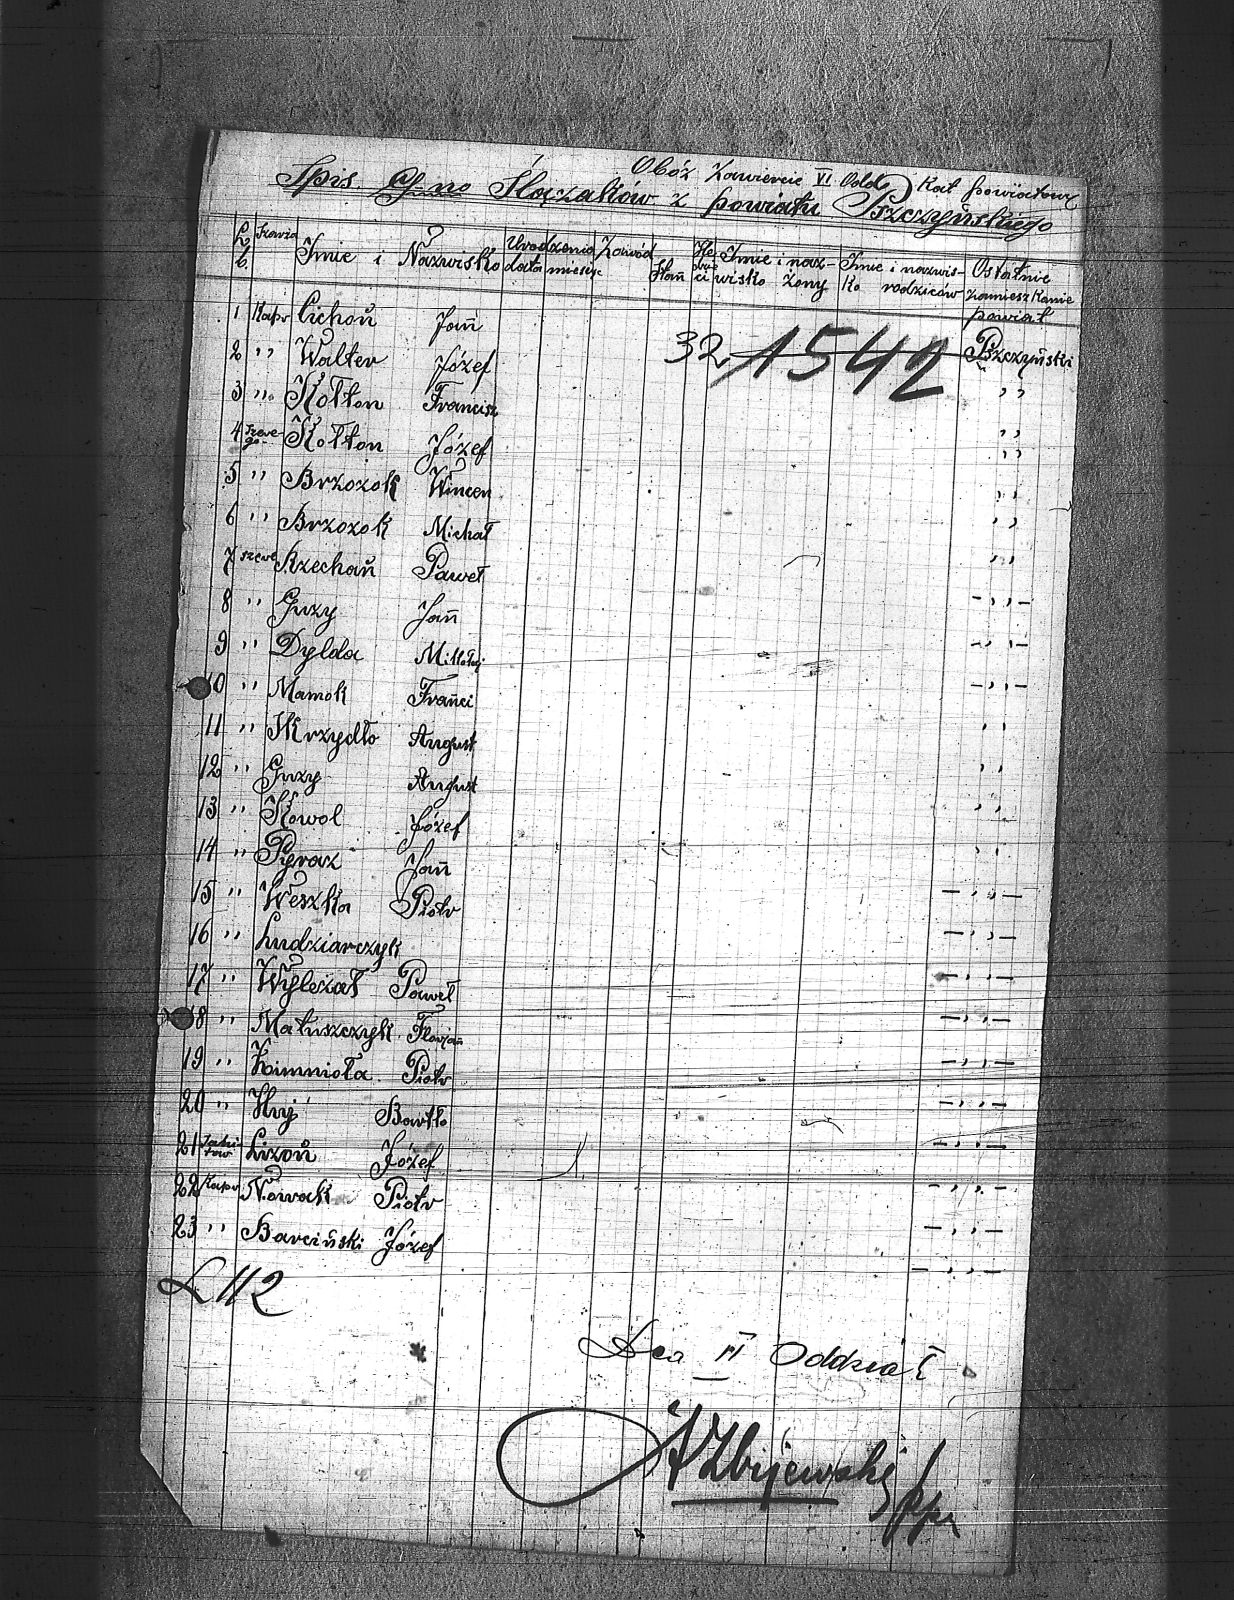 Obóz Zawiercie VI Odd Kat powiatowy
Spis Śląszaków z powiatu Pszczyńskiego
L.b. Szarża Imie i Nazwisko Urodzenia data miesiąc Zawód Stan Imie i naz-wisko żony Imie i nazwis-ko rodziców Ostatnie zamieszkanie powiat
1 Kapr Cichoń Jań
2 " Walter Józef 32 1542 Pszczyński
3 " Kołton Francisz "
4 Szere-go- Kołton Józef "
5 " Brzozok Wincen "
6 " Brzozok Michał "
7 szere Krzechoń Paweł "
8 " Guzy Jań - " -
9 " Dylda Mikołaj - " -
10 " Mamok Franci - " -
11 " Skrzydło August "
12 " Guzy August "
13 " Kowol Józef "
14 " Pyraz Jań "
15 " Weszka Piotr - " -
16 " Ludziarczyk - " -
17 " Wyleżał Paweł - " -
18 " Matuszczyk Florjan - " -
19 " Zimnioła Piotr - " -
20 " Huj Bartło - " -
21 Lizoń Józef - " -
22 Kapr Nowak Piotr - " -
23 " Barciński Józef - " -
L 112
Dca VI Oddział
Zbijewski ppr